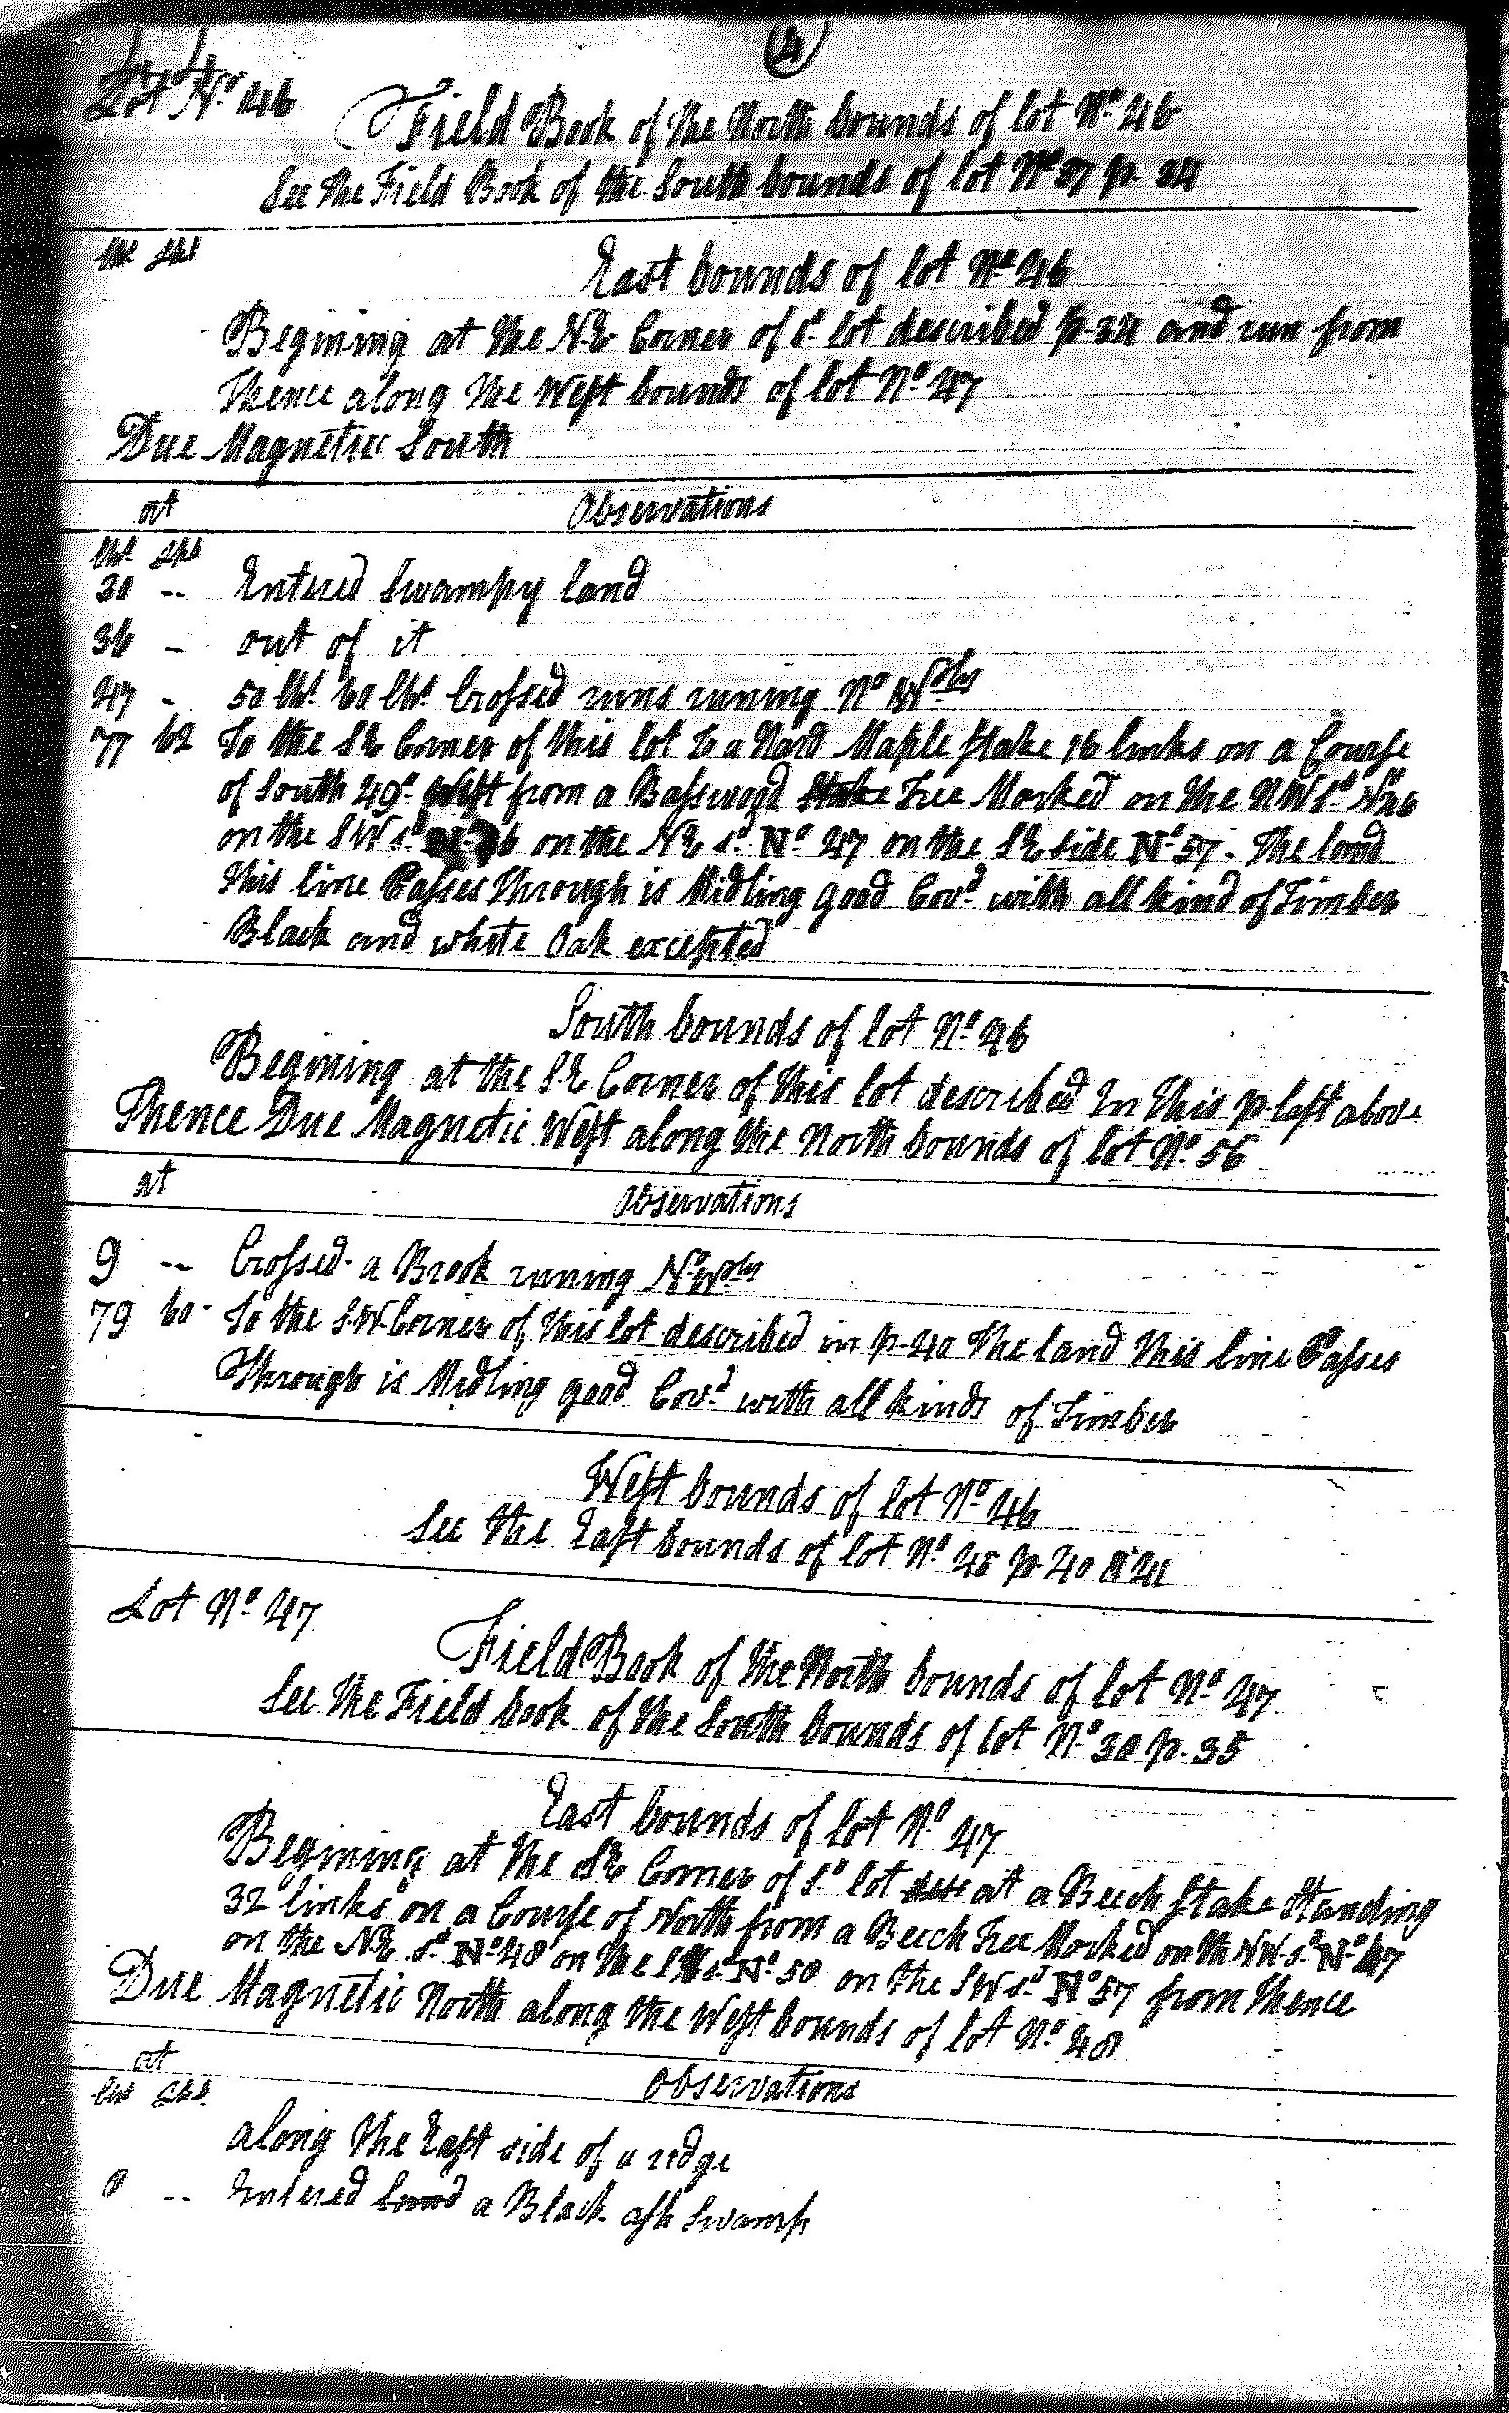 Lot No. 46
Field Book of the North bounds of lot No. 46
See the Field Book of the South bounds of lot No 37 p. 34
Chs Lks
East bounds of lot No. 46
Begining at the N.E Corner of sd. lot described p. 34 and run from
Thence along the West bounds of lot No. 47
Due Magnetic South
at Observations
Chs Lks
30 -- Entered Swampy land
36 - out of it
47 - 50 Chs. 60 Chs. Crossed runs runing No Wstly
77 62 To the SE Corner of this lot to a Hard Maple stake 16 links on a Course
of South 49d. West from a Basswood Stake Tree Marked on the NW sd. No. 46
on the SW sd. 56 on the NE sd. No. 47 on the SE side No. 57. The land
this line Passes through is Midling good Covd. with all kind of Timber
Black and white Oak excepted
South bounds of lot No. 46
Begining at the SE Corner of this lot described In this p. last above
Thence Due Magnetic West along the North bounds of lot No. 56
at Observations
9 -- Crossed a Brook runing No Wstly
79 60 - To the SW Corner of this lot described in p. 40 The land this line Passes
Through is Midling good Covd. with all kinds of Timber
West bounds of lot No. 46
See the East bounds of lot No. 45 p. 40 & 41
Lot No. 47
Field Book of the North bounds of lot No. 47
See the Field book of the South bounds of lot No. 38 p. 35
East bounds of lot No. 47
Begining at the SE Corner of sd. lot at a Beech Stake Standing
32 links on a Course of North from a Beech Tree Marked on the NW sd. No. 47
on the NE sd. No. 48 on the sd. No. 58 on the SW sd. No 57 from Thence
Due Magnetic North along the West bounds of lot No. 48
at Observations
Chs Lks.
along the East side of a redge
8 -- Entered land a Black ash Swamp